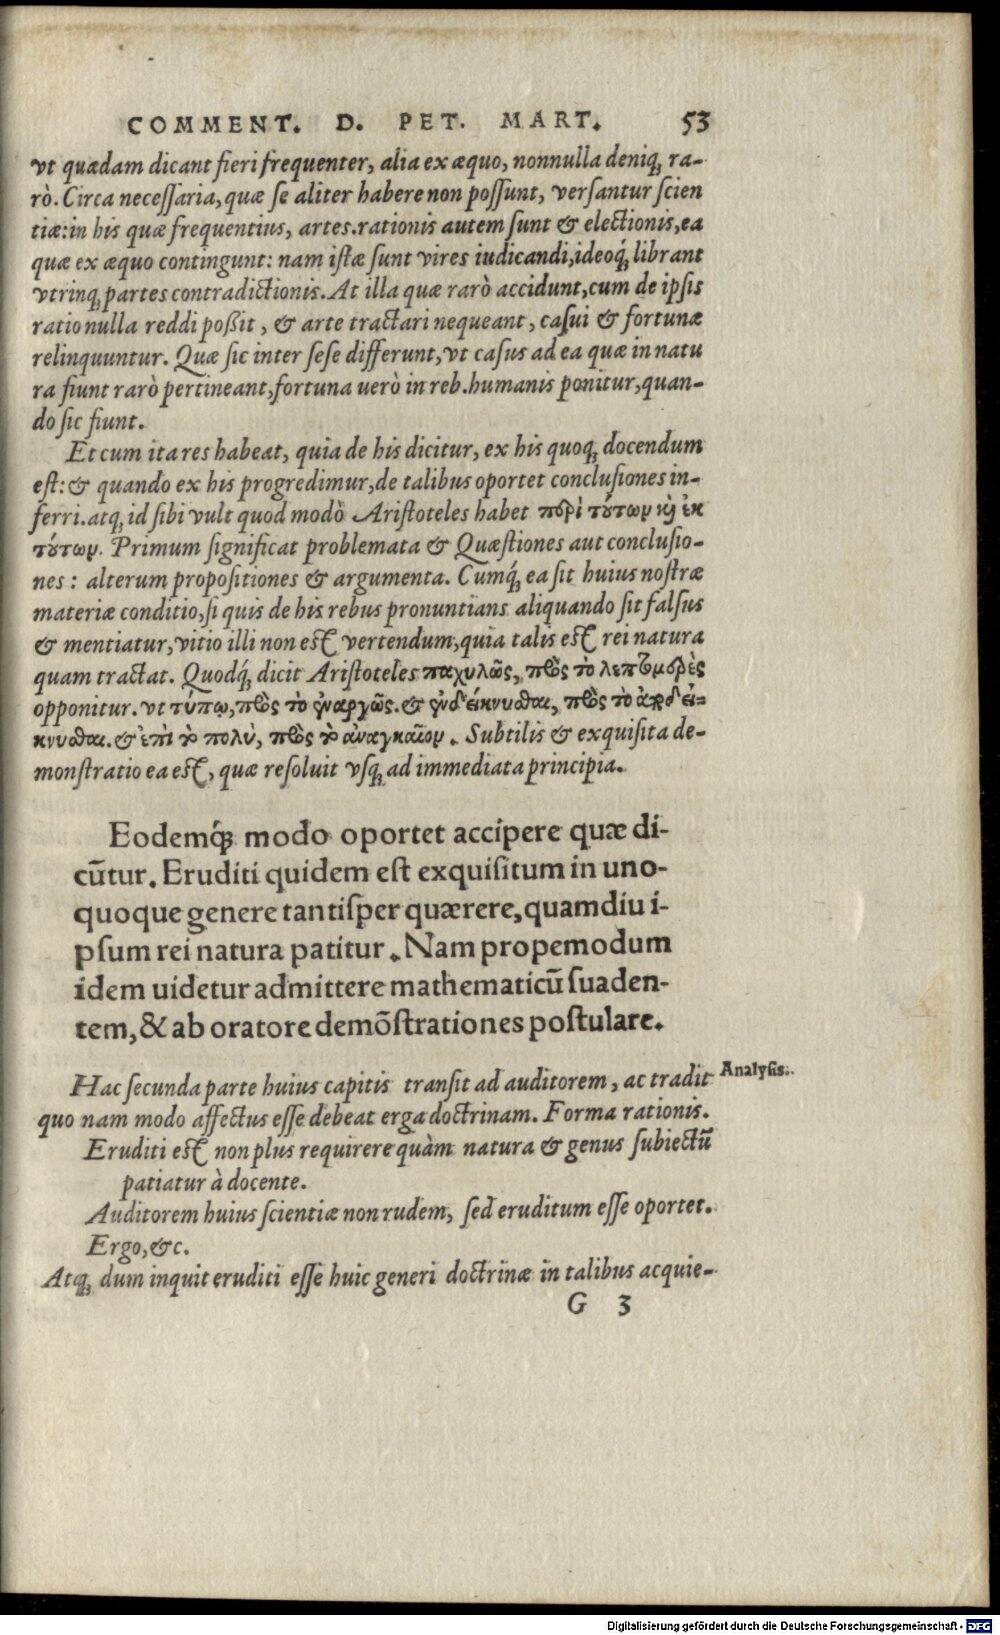 COMMENT. D. PET. MART. 53
vt quædam dicant fieri frequenter, alia ex æquo, nonnulla deniq; ra-
rò. Circa necessaria, quæ se aliter habere non possunt, versantur scien
tiæ: in his quæ frequentius, artes. rationis autem sunt & electionis, ea
quæ ex æquo contingunt: nam istæ sunt vires iudicandi, ideoq́; librant
vtrinq; partes contradictionis. At illa quæ rarò accidunt, cum de ipsis
ratio nulla reddi poßit, & arte tractari nequeant, casui & fortunæ
relinquuntur. Quæ sic inter sese differunt, vt casus ad ea quæ in natu
ra fiunt rarò pertineant, fortuna uerò in reb. humanis ponitur, quan-
do sic fiunt.
Et cum ita res habeat, quia de his dicitur, ex his quoq; docendum
est: & quando ex his progredimur, de talibus oportet conclusiones in-
ferri. atq; id sibi vult quod modò Aristoteles habet περὶ τούτων κὶ ἐκ
τούτων. Primum significat problemata & Quæstiones aut conclusio-
nes: alterum propositiones & argumenta. Cumq́; ea sit huius nostræ
materiæ conditio, si quis de his rebus pronuntians aliquando sit falsus
& mentiatur, vitio illi non est vertendum, quia talis est rei natura
quam tractat. Quodq́; dicit Aristoteles παχυλῶς, πρὸς τὸ λεπτομερὲς
opponitur. vt τύπῳ, πρὸς τὸ ἐναργῶς. & ἐνδείκνυσθαι, πρὸς τὸ ἀποδεί-
κνυσθαι. & ἐπὶ τὸ πολύ, πρὸς τὸ ἀναγκαῖον. Subtilis & exquisita de-
monstratio ea est, quæ resoluit vsq; ad immediata principia.
Eodemq́; modo oportet accipere quæ di-
cũtur. Eruditi quidem est exquisitum in uno-
quoque genere tantisper quærere, quamdiu i-
psum rei natura patitur. Nam propemodum
idem uidetur admittere mathematicũ suaden-
tem, & ab oratore demõstrationes postulare.
Hac secunda parte huius capitis transit ad auditorem, ac tradit Analysis.
quo nam modo affectus esse debeat erga doctrinam. Forma rationis.
Eruditi est non plus requirere quàm natura & genus subiectũ
patiatur à docente.
Auditorem huius scientiæ non rudem, sed eruditum esse oportet.
Ergo, &c.
Atq; dum inquit eruditi esse huic generi doctrinæ in talibus acquie-
G 3
Digitalisierung gefördert durch die Deutsche Forschungsgemeinschaft - DFG